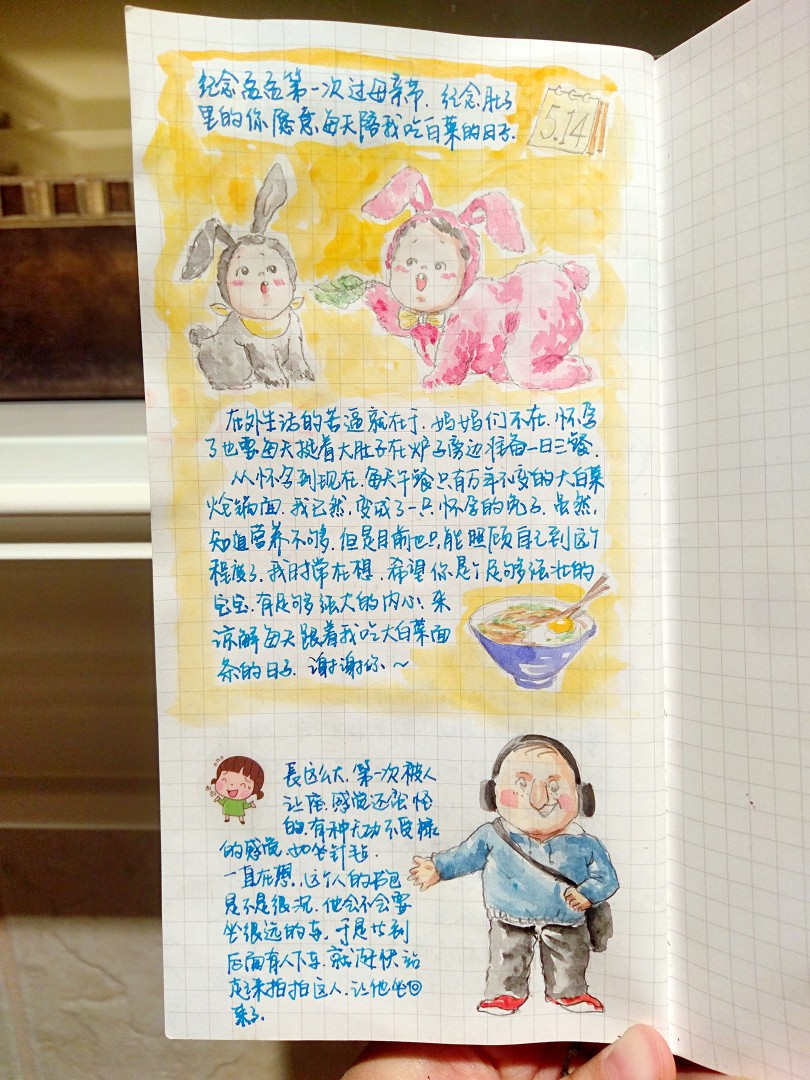 纪念孟孟第一次过母亲节.纪念肚子
里的你愿意每天陪我吃白菜的日子.
5.14
在外生活的苦逼就在于.妈妈们不在.怀孕
了也要每天挺着大肚子在炉子旁边准备一日三餐.
从怀孕到现在.每天午餐只有万年不变的大白菜
炝锅面.我已然.变成了一只怀孕的兔子.虽然,
知道营养不够.但是目前也只能照顾自己到这个
程度了.我时常在想.希望你是个足够强壮的
宝宝.有足够强大的内心.来
谅解每天跟着我吃大白菜面
条的日子.谢谢你.~
長这么大.第一次被人
让座.感觉还蛮怪
的.有种无功不受禄
的感觉.如坐针毡.
一直在想.这个人的书包
是不是很沉.他会不会要
坐很远的车.于是等到
后面有人下车.就赶快站
起来拍拍这人.让他坐回
来了.